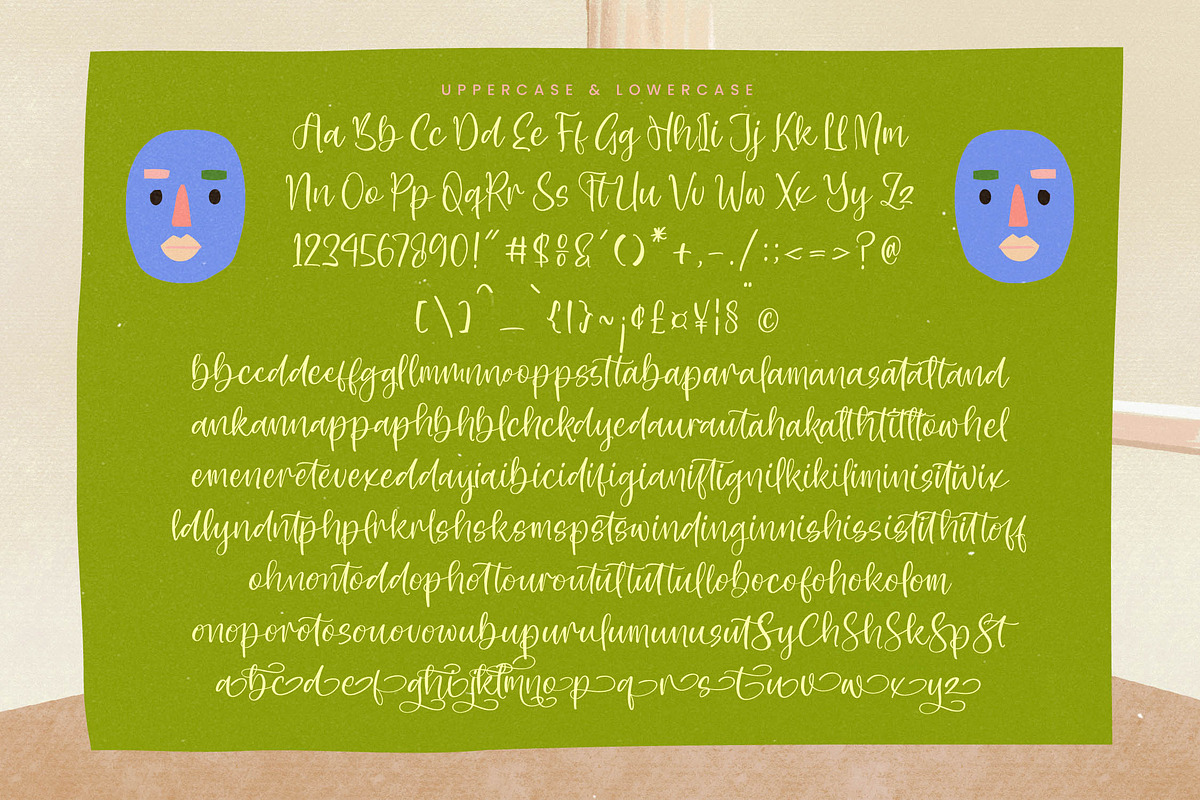 UPPERCASE & LOWERCASE
Aa Bb Cc Dd Ee Ff Gg Hh Ii Jj Kk Ll Mm
Nn Oo Pp Qq Rr Ss Tt Uu Vv Ww Xx Yy Zz
1234567890!"#$%&'()*+,-./:;<=>?@
[\]^_`{|}~¡¢£¤¥¦§¨©
bbccddeeffggllmmnnooppssttabaparalamanasataltand
ankannappaphbhblchckdyedaurautahakaltlthtitlttowhel
emeneretevexeddayiaibicidifigianiftignilkikiliminisitivix
ldlyndntphpfrkrlshsksmspstswindinginnishissistithittoff
ohnontoddophottouroutultuttullobocofohokolom
onoporotosouovowubupurulumunusutSyChShSkSpSt
abcdefghijklmnopqrstuvwxyz